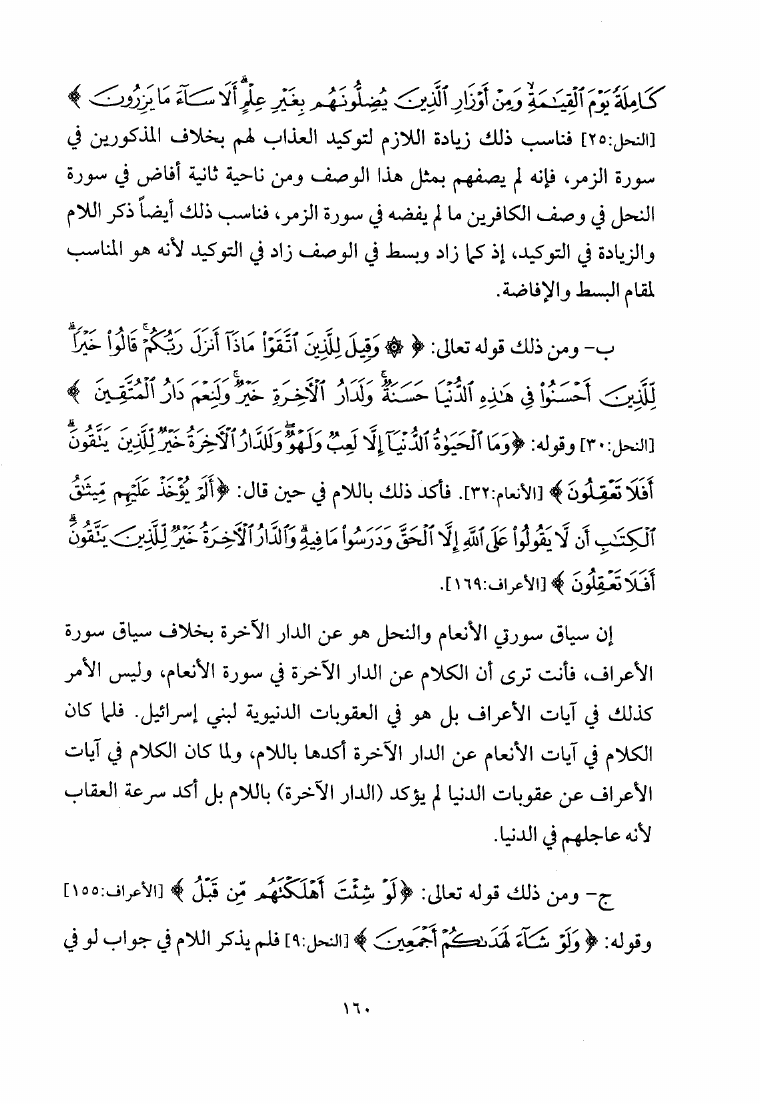 كَامِلَةً يَوْمَ ٱلْقِيَـٰمَةِ ۙ وَمِنْ أَوْزَارِ ٱلَّذِينَ يُضِلُّونَهُم بِغَيْرِ عِلْمٍ ۗ أَلَا سَآءَ مَا يَزِرُونَ ﴾
[النحل:٢٥] فناسب ذلك زيادة اللازم لتوكيد العذاب لهم بخلاف المذكورين في
سورة الزمر، فإنه لم يصفهم بمثل هذا الوصف ومن ناحية ثانية أفاض في سورة
النحل في وصف الكافرين ما لم يفضه في سورة الزمر، فناسب ذلك أيضاً ذكر اللام
والزيادة في التوكيد، إذ كما زاد وبسط في الوصف زاد في التوكيد لأنه هو المناسب
لمقام البسط والإفاضة.
ب- ومن ذلك قوله تعالى: ﴿ ۞ وَقِيلَ لِلَّذِينَ ٱتَّقَوْا۟ مَاذَآ أَنزَلَ رَبُّكُمْ ۚ قَالُوا۟ خَيْرًا ۗ
لِّلَّذِينَ أَحْسَنُوا۟ فِى هَـٰذِهِ ٱلدُّنْيَا حَسَنَةٌ ۚ وَلَدَارُ ٱلْـَٔاخِرَةِ خَيْرٌ ۚ وَلَنِعْمَ دَارُ ٱلْمُتَّقِينَ ﴾
[النحل:٣٠] وقوله: ﴿وَمَا ٱلْحَيَوٰةُ ٱلدُّنْيَآ إِلَّا لَعِبٌ وَلَهْوٌ ۖ وَلَلدَّارُ ٱلْـَٔاخِرَةُ خَيْرٌ لِّلَّذِينَ يَتَّقُونَ ۗ
أَفَلَا تَعْقِلُونَ ﴾ [الأنعام:٣٢]. فأكد ذلك باللام في حين قال: ﴿أَلَمْ يُؤْخَذْ عَلَيْهِم مِّيثَـٰقُ
ٱلْكِتَـٰبِ أَن لَّا يَقُولُوا۟ عَلَى ٱللَّهِ إِلَّا ٱلْحَقَّ وَدَرَسُوا۟ مَا فِيهِ ۗ وَٱلدَّارُ ٱلْـَٔاخِرَةُ خَيْرٌ لِّلَّذِينَ يَتَّقُونَ ۗ
أَفَلَا تَعْقِلُونَ ﴾ [الأعراف:١٦٩].
إن سياق سورتي الأنعام والنحل هو عن الدار الآخرة بخلاف سياق سورة
الأعراف، فأنت ترى أن الكلام عن الدار الآخرة في سورة الأنعام، وليس الأمر
كذلك في آيات الأعراف بل هو في العقوبات الدنيوية لبني إسرائيل. فلما كان
الكلام في آيات الأنعام عن الدار الآخرة أكدها باللام، ولما كان الكلام في آيات
الأعراف عن عقوبات الدنيا لم يؤكد (الدار الآخرة) باللام بل أكد سرعة العقاب
لأنه عاجلهم في الدنيا.
ج- ومن ذلك قوله تعالى: ﴿لَوْ شِئْتَ أَهْلَكْتَهُم مِّن قَبْلُ ﴾ [الأعراف:١٥٥]
وقوله: ﴿ وَلَوْ شَآءَ لَهَدَىٰكُمْ أَجْمَعِينَ ﴾ [النحل:٩] فلم يذكر اللام في جواب لو في
١٦٠